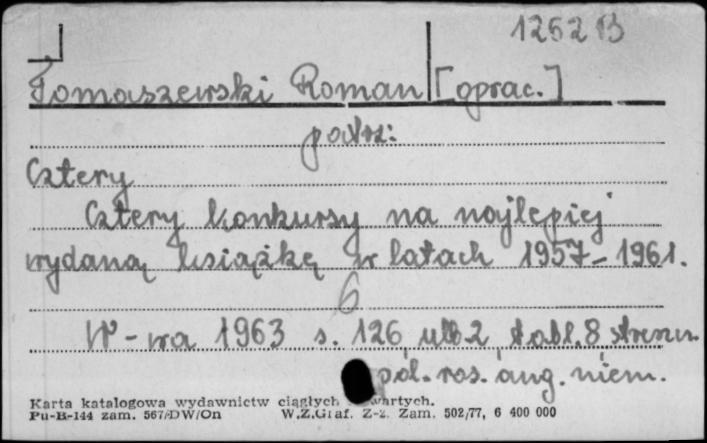 1262 B
Tomaszewski Roman [oprac.]
patrz:
Cztery
Cztery konkursy na najlepiej
wydaną książkę w latach 1957-1961.
6
W-wa 1963 s. 126 ulb. 2, tabl. 8 streszcz.
pol. ros. ang. niem.
Karta katalogowa wydawnictw ciągłych
Pu-B-144 zam. 567/DW/On W.Z.Graf. Z-z. Zam. 502/77, 6 400 000